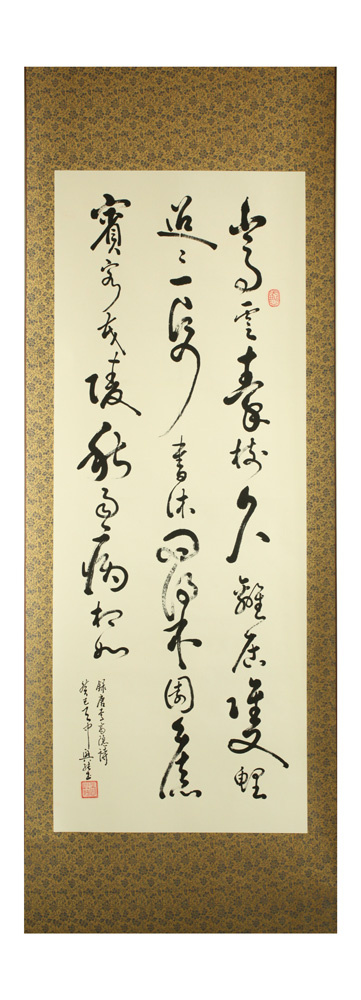 嵩雲秦樹久離居雙鯉
迢〻一紙書休問梁園舊
賓客茂陵秋雨病相如
錄唐李商隱詩
癸巳